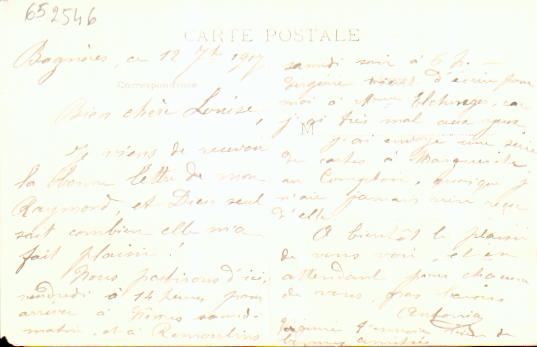 652546
CARTE POSTALE
Correspondance
Bagnères, ce 12 7bre 1917
Bien chère Louise,
Je viens de recevoir
la bonne lettre de mon
Raymond, et Dieu seul
sait combien elle m'a
fait plaisir!
Nous partirons d'ici,
vendredi à 14 heures pour
arriver à Nîmes samedi
matin, et à Remoulins
samedi soir à 6 h. —
d'écrire pour
moi à car
j'ai très mal aux yeux
M
J'ai envoyé une série
de cartes à Marguerite
au Comptoir, quoique je
n'aie jamais rien reçu
d'elle
A bientôt le plaisir
de vous voir, et en
attendant pour chacun
de vous, gros baisers